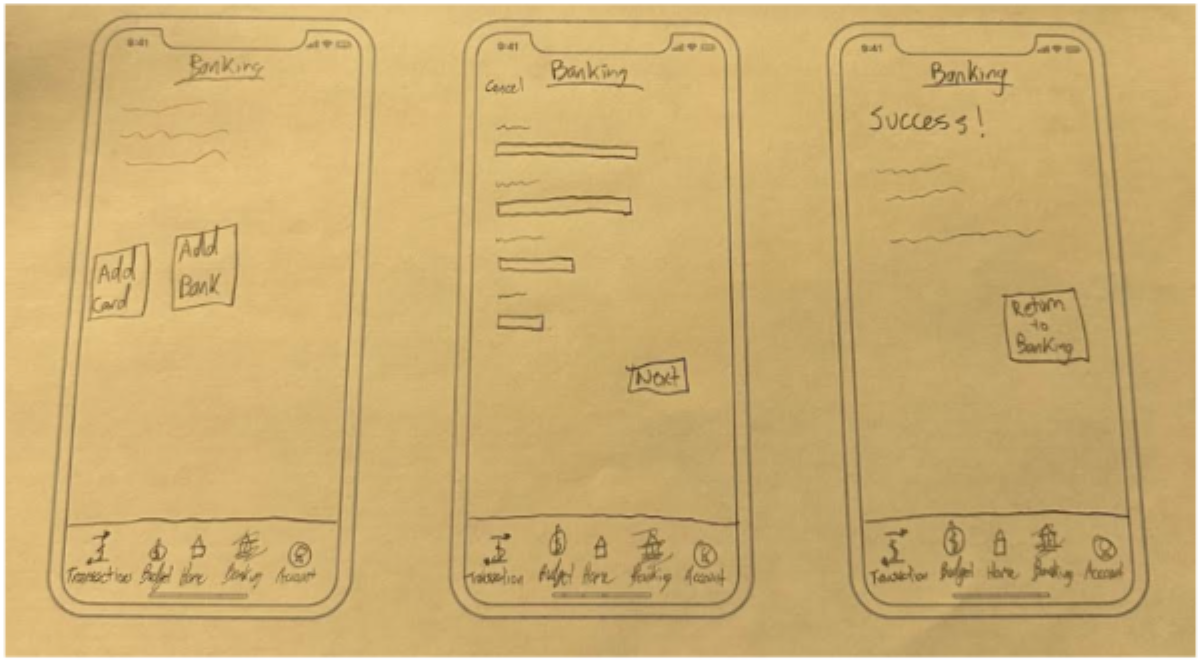 9:41
Banking
Add
Card
Add
Bank
Transactions Budget Home Banking Account
9:41
Banking
Cancel
Next
Transaction Budget Home Banking Account
9:41
Banking
Success!
Return
to
Banking
Transaction Budget Home Banking Account